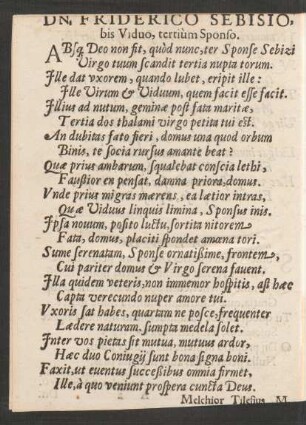 DN. FRIDERICO SEBISIO,
bis Viduo, tertiùm Sponso.
ABsq́; Deo non fit, quòd nunc, ter Sponse Sebizi
Virgo tuum scandit tertia nupta torum.
Ille dat vxorem, quando lubet, eripit ille:
Ille Virum & Viduum, quem facit esse facit.
Illius ad nutum, geminæ post fata maritæ,
Tertia dos thalami virgo petita tui est.
An dubitas fato fieri, domus una quod orbum
Binis, te socia rursus amante beat?
Quæ prius ambarum, squalebat conscia lethi,
Faustior en pensat, damna priora, domus.
Vnde prius migras mærens, ea lætior intras,
Quæ Viduus linquis limina, Sponsus inis.
Ipsa novum, posito luctu, sortita nitorem
Fata, domus, placiti spondet amœna tori.
Sume serenatam, Sponse ornatißime, frontem,
Cui pariter domus & Virgo serena favent.
Illa quidem veteris, non immemor hospitis, ast hæc
Capta verecundo nuper amore tui.
Vxoris sat habes, quartam ne posce, frequenter
Lædere naturam. sumpta medela solet.
Inter vos pietas sit mutua, mutuus ardor,
Hæc duo Coniugij sunt bona signa boni.
Faxit, ut eventus succeßibus omnia firmet,
Ille, à quo veniunt prospera cuncta Deus.
Melchior Tilesius M.